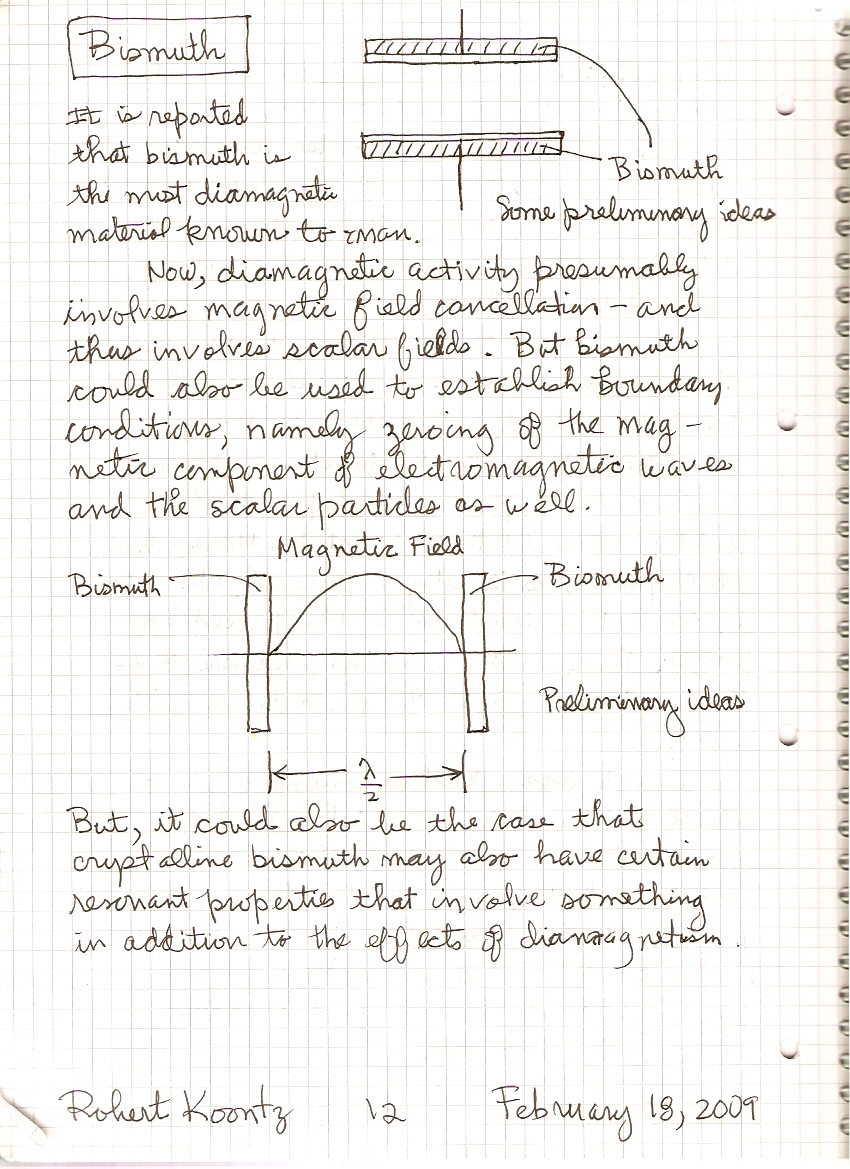 Bismuth
It is reported
that bismuth is
the most diamagnetic
material known to man.
Bismuth
Some preliminary ideas
Now, diamagnetic activity presumably
involves magnetic field cancellation – and
thus involves scalar fields. But bismuth
could also be used to establish boundary
conditions, namely zeroing of the mag-
netic component of electromagnetic waves
and the scalar particles as well.
Magnetic Field
Bismuth
Bismuth
Preliminary ideas
λ/2
But, it could also be the case that
crystalline bismuth may also have certain
resonant properties that involve something
in addition to the effects of diamagnetism.
Robert Koontz 12 February 18, 2009